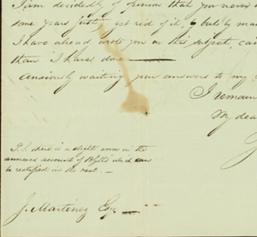 I am decidedly of opinion that you never
some years get rid of it, & but by
I have already wrote you on this subject,
than I have done
Anxiously waiting your answers to my
I remain
My dear
P.S. there is a slight error in the
annexed account of which
be rectified in the next.
J. Martinez Esq.